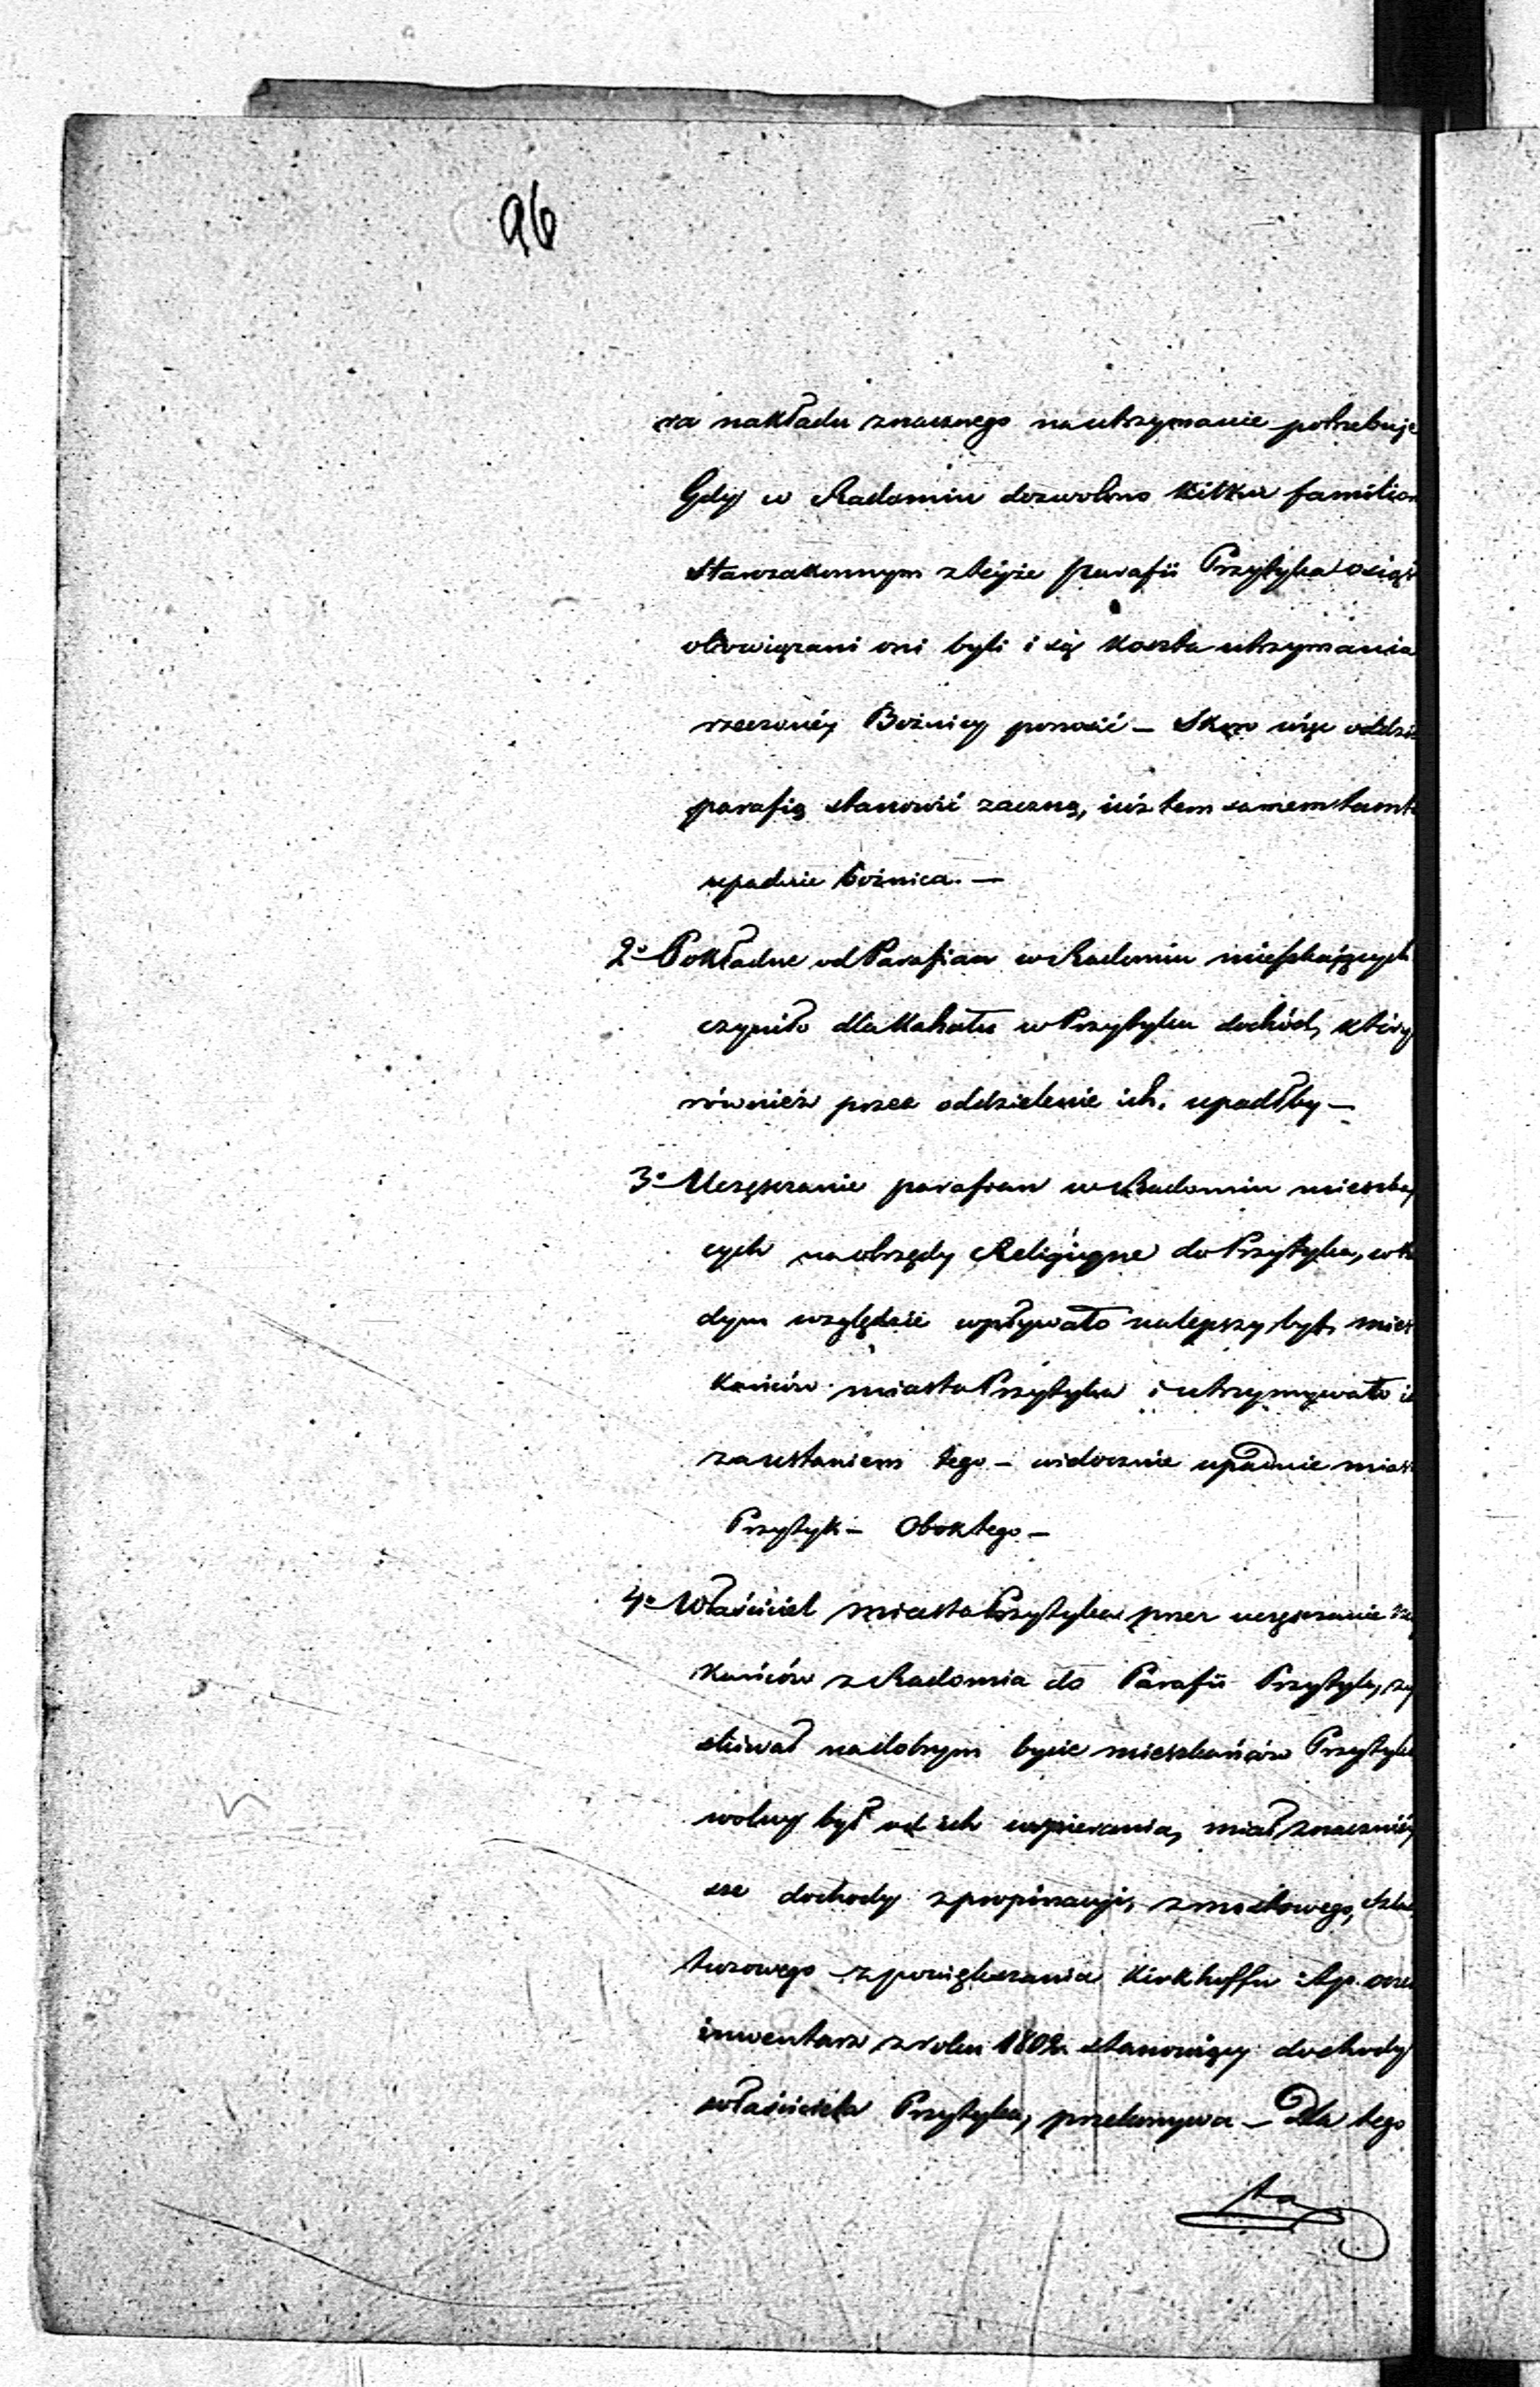 96
ra nakładu znacznego na utrzymanie potrzebuje
Gdy w Radomiu dozwolono kilku familiom
starozakonnym z tejże parafii Przytyka osiąść
obowiązani oni byli i są koszta utrzymania
rzeczonéy Bożnicy ponosić – Skoro więc oddzi
parafią stanowić zaczną, iuż tem samem tamt
upadnie bożnica. –
2o Pokładne od Parafian w Radomiu mieszkaiących
czyniło dla Kahału w Przytyku dochód, który
również przez oddzielenie ich, upadłby –
3o Uczęszczanie parafian w Radomiu mieszka
cych na obrzędy Religiyne do Przytyka, w ka
dym względzie wpływało na lepszy byt miesz
kańców miasta Przytyka i utrzymywało i
za ustaniem tego – widocznie upadnie mias
Przytyk – Obok tego –
4o Właściciel miasta Przytyka przez uczęszczanie
kańców z Radomia do Parafii Przytyk, zy
skiwał na dobrym bycie mieszkańców Przytyka
wolny był od ich wspierania, miał znacznié
sze dochody z propinacyi, z mostowego, szlac
tuzowego z powiększania Kirkhoffu itp. 
inwentarz z roku 1802 stanowiący dochody
właściciela Przytyka, przekonywa – Dla tego